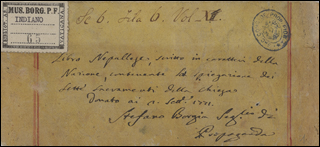 MUS. BORG. P. F.
INDIANO
65
Sc. 6. Fila 6. Vol. XI.
Libro Nepallese, scritto in caratteri della
Nazione, contenente la spiegazione dei
Setti Sacramenti della Chiesa
Donato ai Sett. 1771.
Stefano Borgia Seg. di
Propaganda